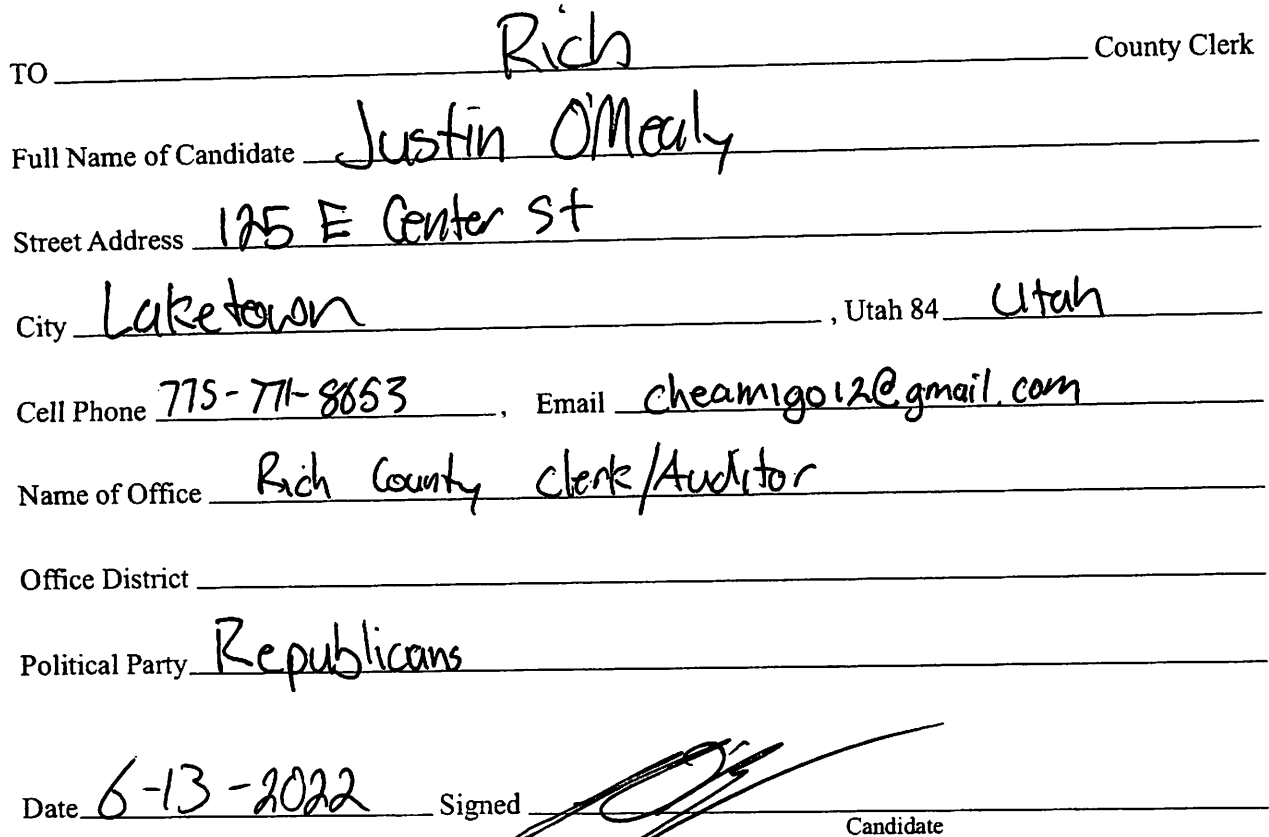 TO Rich County Clerk
Full Name of Candidate Justin O'Mealy
Street Address 125 E Center St
City Laketown , Utah 84 Utah
Cell Phone 775-771-8653 , Email cheamigo12@gmail.com
Name of Office Rich County Clerk/Auditor
Office District
Political Party Republicans
Date 6-13-2022 Signed
Candidate